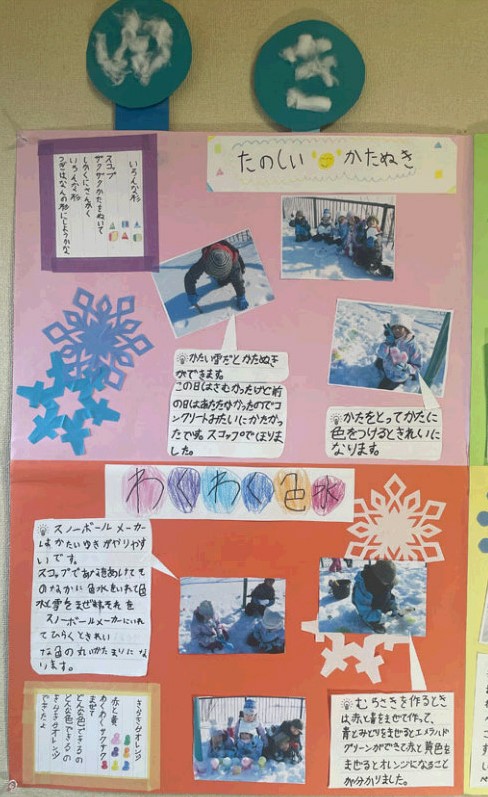 ゆき
たのしい かたぬき
いろんな形
スコップ
ザクザクかたをぬいて
しかくにさんかく
いろんな形
つぎはなんの形にしようかな
かたい雪だとかたぬき
ができます。
この日はさむかったけど前
の日はあたたかかったのでコ
ンクリートみたいにかたかっ
たです。スコップでほりま
した。
かたをとってかたに
色をつけるときれいに
なります。
わくわく色水
スノーボールメーカー
はかたいゆきがやりやす
いです。
スコップであなをあけてそ
のなかに色水をいれて色
水と雪をまぜ
スノーボールメーカーにいれ
てひらくときれい
な色の丸いかたまりにな
ります。
きらきらオレンジ
赤と黄
まぜて
わくわくザクザク
どんな色できるの
どんな色できるの
きらきらオレンジ
できたよ
むらさきを作るとき
は赤と青をまぜて作って、
青とみどりをまぜるとエメラルド
グリーンができて赤と黄色を
まぜるとオレンジになること
が分かりました。